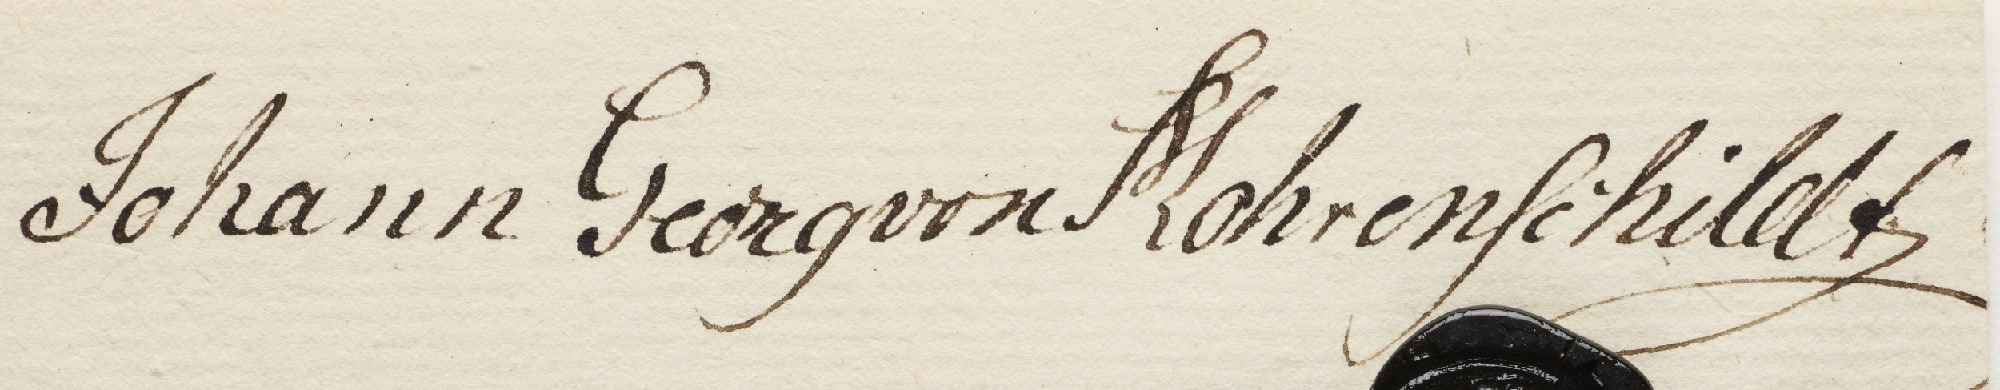 Johann Georg von Kohrenschildt